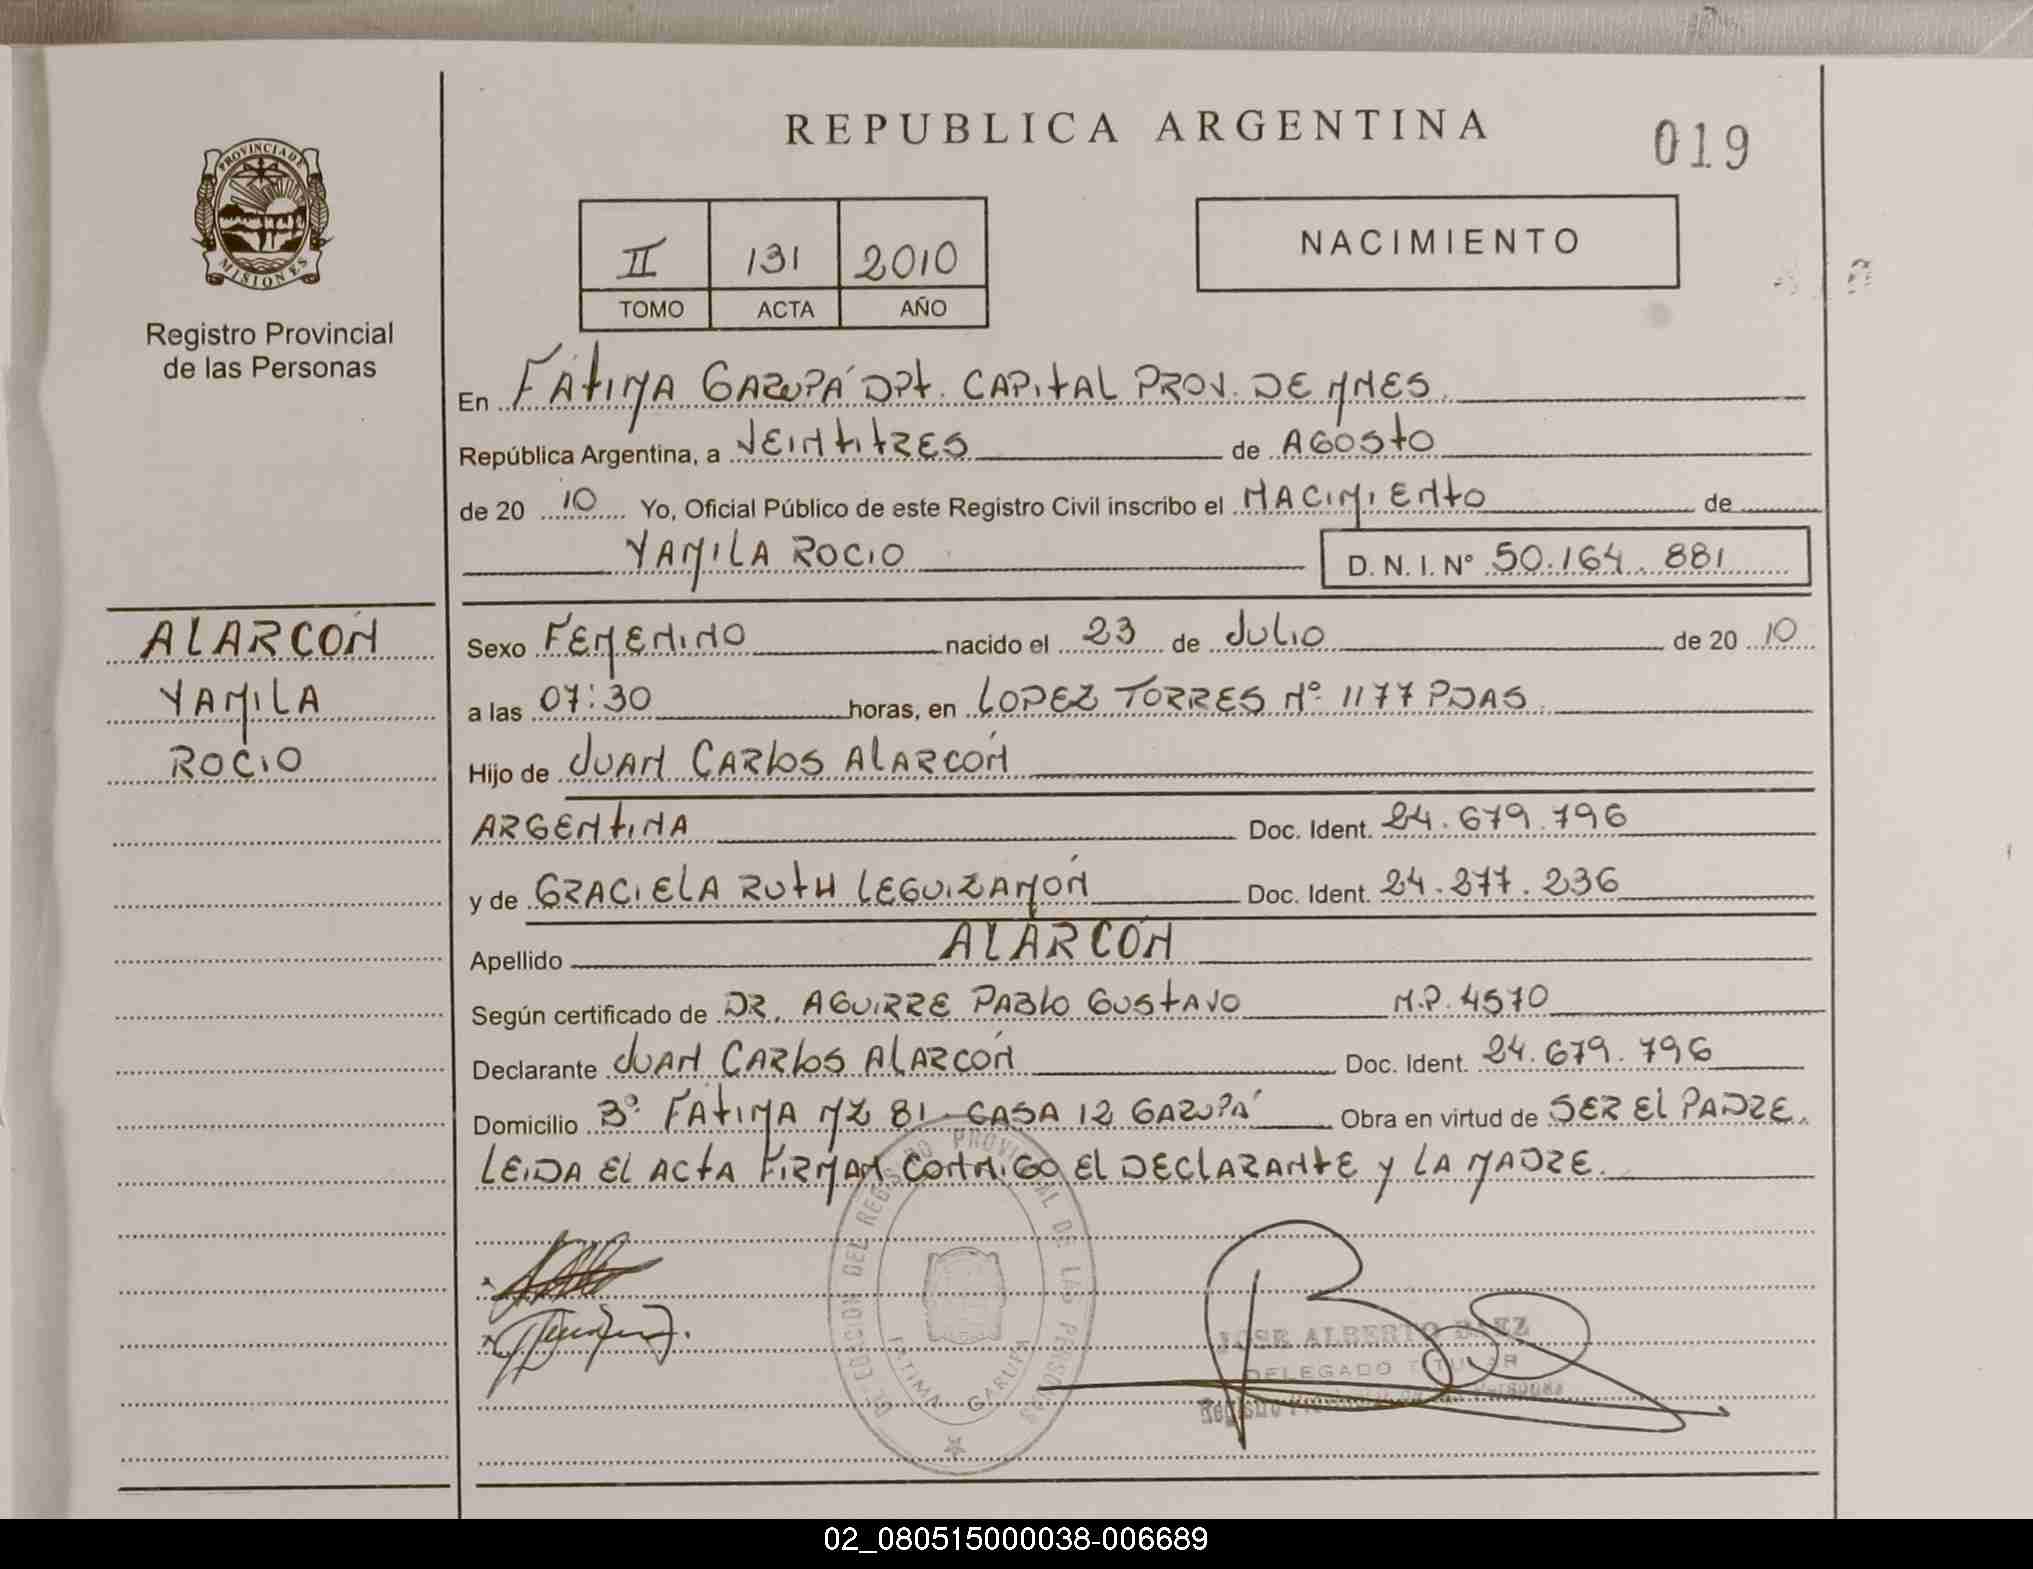 REPUBLICA ARGENTINA
019
PROVINCIA DE
MISIONES
Registro Provincial
de las Personas
II 131 2010
TOMO ACTA AÑO
NACIMIENTO
En FÁTIMA GARUPÁ DPt. CAPITAL PROV. DE MNES
República Argentina, a VEINTITRES de AGOSTO
de 20 10 Yo, Oficial Público de este Registro Civil inscribo el NACIMIENTO de
YAMILA ROCIO D. N. I. Nº 50.164.881
ALARCÓN
YAMILA
ROCIO
Sexo FEMENINO nacido el 23 de JULIO de 20 10
a las 07:30 horas, en LOPEZ TORRES Nº 1177 PDAS
Hijo de JUAN CARLOS ALARCÓN
ARGENTINA Doc. Ident. 24.679.796
y de GRACIELA RUTH LEGUIZAMÓN Doc. Ident. 24.277.236
Apellido ALARCÓN
Según certificado de DR. AGUIRRE PABLO GUSTAVO M.P. 4570
Declarante JUAN CARLOS ALARCÓN Doc. Ident. 24.679.796
Domicilio Bº FÁTIMA MZ 81 CASA 12 GARUPÁ Obra en virtud de SER EL PADRE.
LEIDA EL ACTA FIRMAN CONMIGO EL DECLARANTE y LA MADRE.
DEL REGISTRO PROVINCIAL DE LAS PERSONAS
FATIMA GARUPA
JOSE ALBERTO BAEZ
DELEGADO TITULAR
Registro Provincial de las Personas
02_080515000038-006689